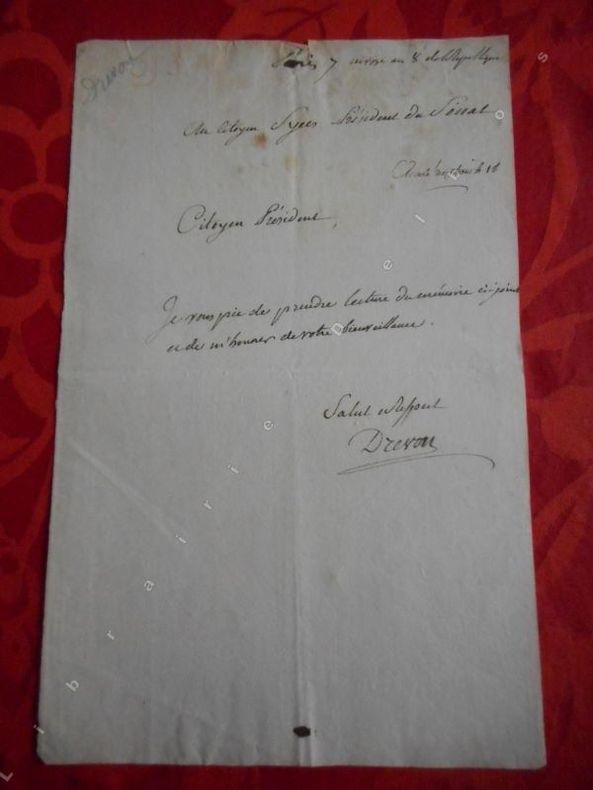 Drevon
Paris 7 nivose an 8 de la République
Au Citoyen Syees Président du Sénat
Citoyen Président,
Je vous prie de prendre lecture du mémoire ci-joint
et de m'honorer de votre bienveillance.
Salut et Respect
Drevon